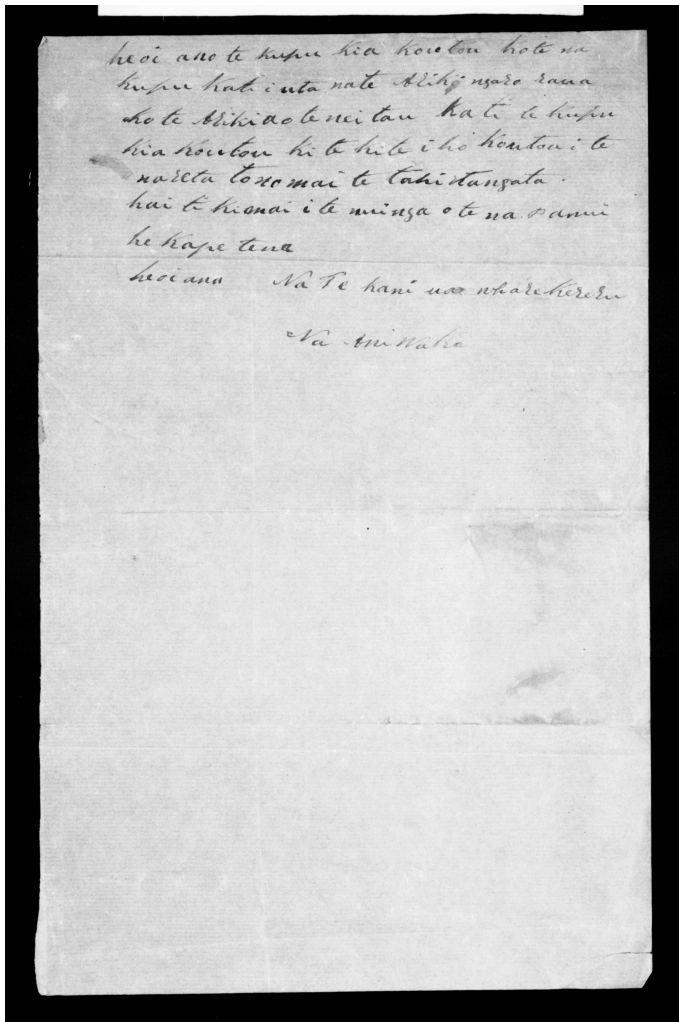 heoi ano te kupu kia koutou kote na
kupu kati i uta nate Ariki ngaro raua
ko te Ariki ao te nei tau Kati te kupu
kia koutou ki te kite iho koutou i te
nareta tonomai te tahi tangata.
hai ti ki mai i te muinga o te na
he kape tena
heoi ano Na Te hani ua wharekereru
Na